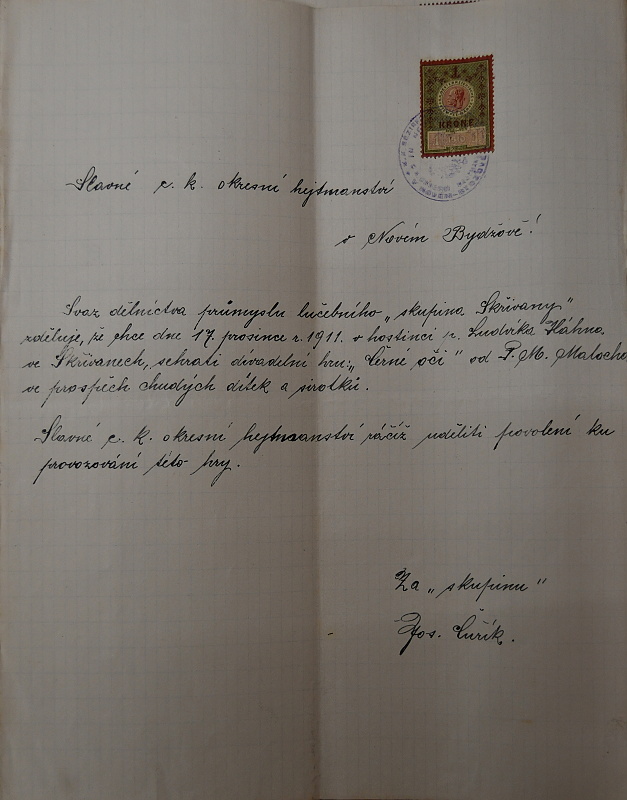 1
KRONE
Slavné c. k. okresní hejtmanství
v Novém Bydžově!
Svaz dělnictva průmyslu lučebního „skupina Skřivany"
zděluje, že chce dne 17. prosince r. 1911. v hostinci p. Ludvíka Háhna
ve Skřivanech, sehrati divadelní hru: „Černé oči" od P. M. Malocho
ve prospěch chudých dítek a sirotků.
Slavné c. k. okresní hejtmanství ráčíž uděliti povolení ku
provozování této hry.
Za „skupinu"
Jos. Čuřík.